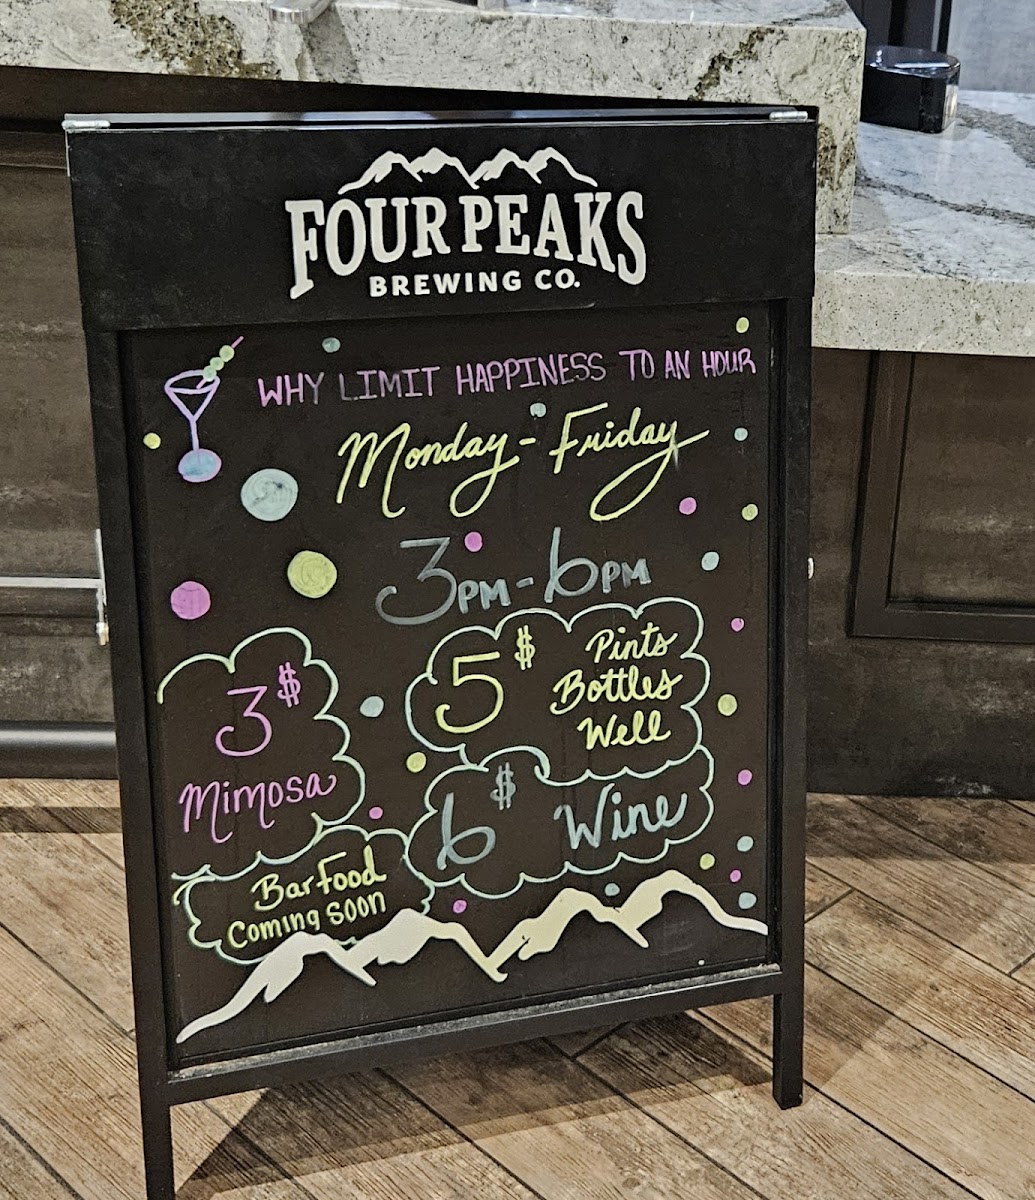 FOUR PEAKS
BREWING CO.
WHY LIMIT HAPPINESS TO AN HOUR
Monday - Friday
3PM - 6PM
3$
Mimosa
5$
Pints
Bottles
Well
6$ Wine
Bar Food
Coming Soon